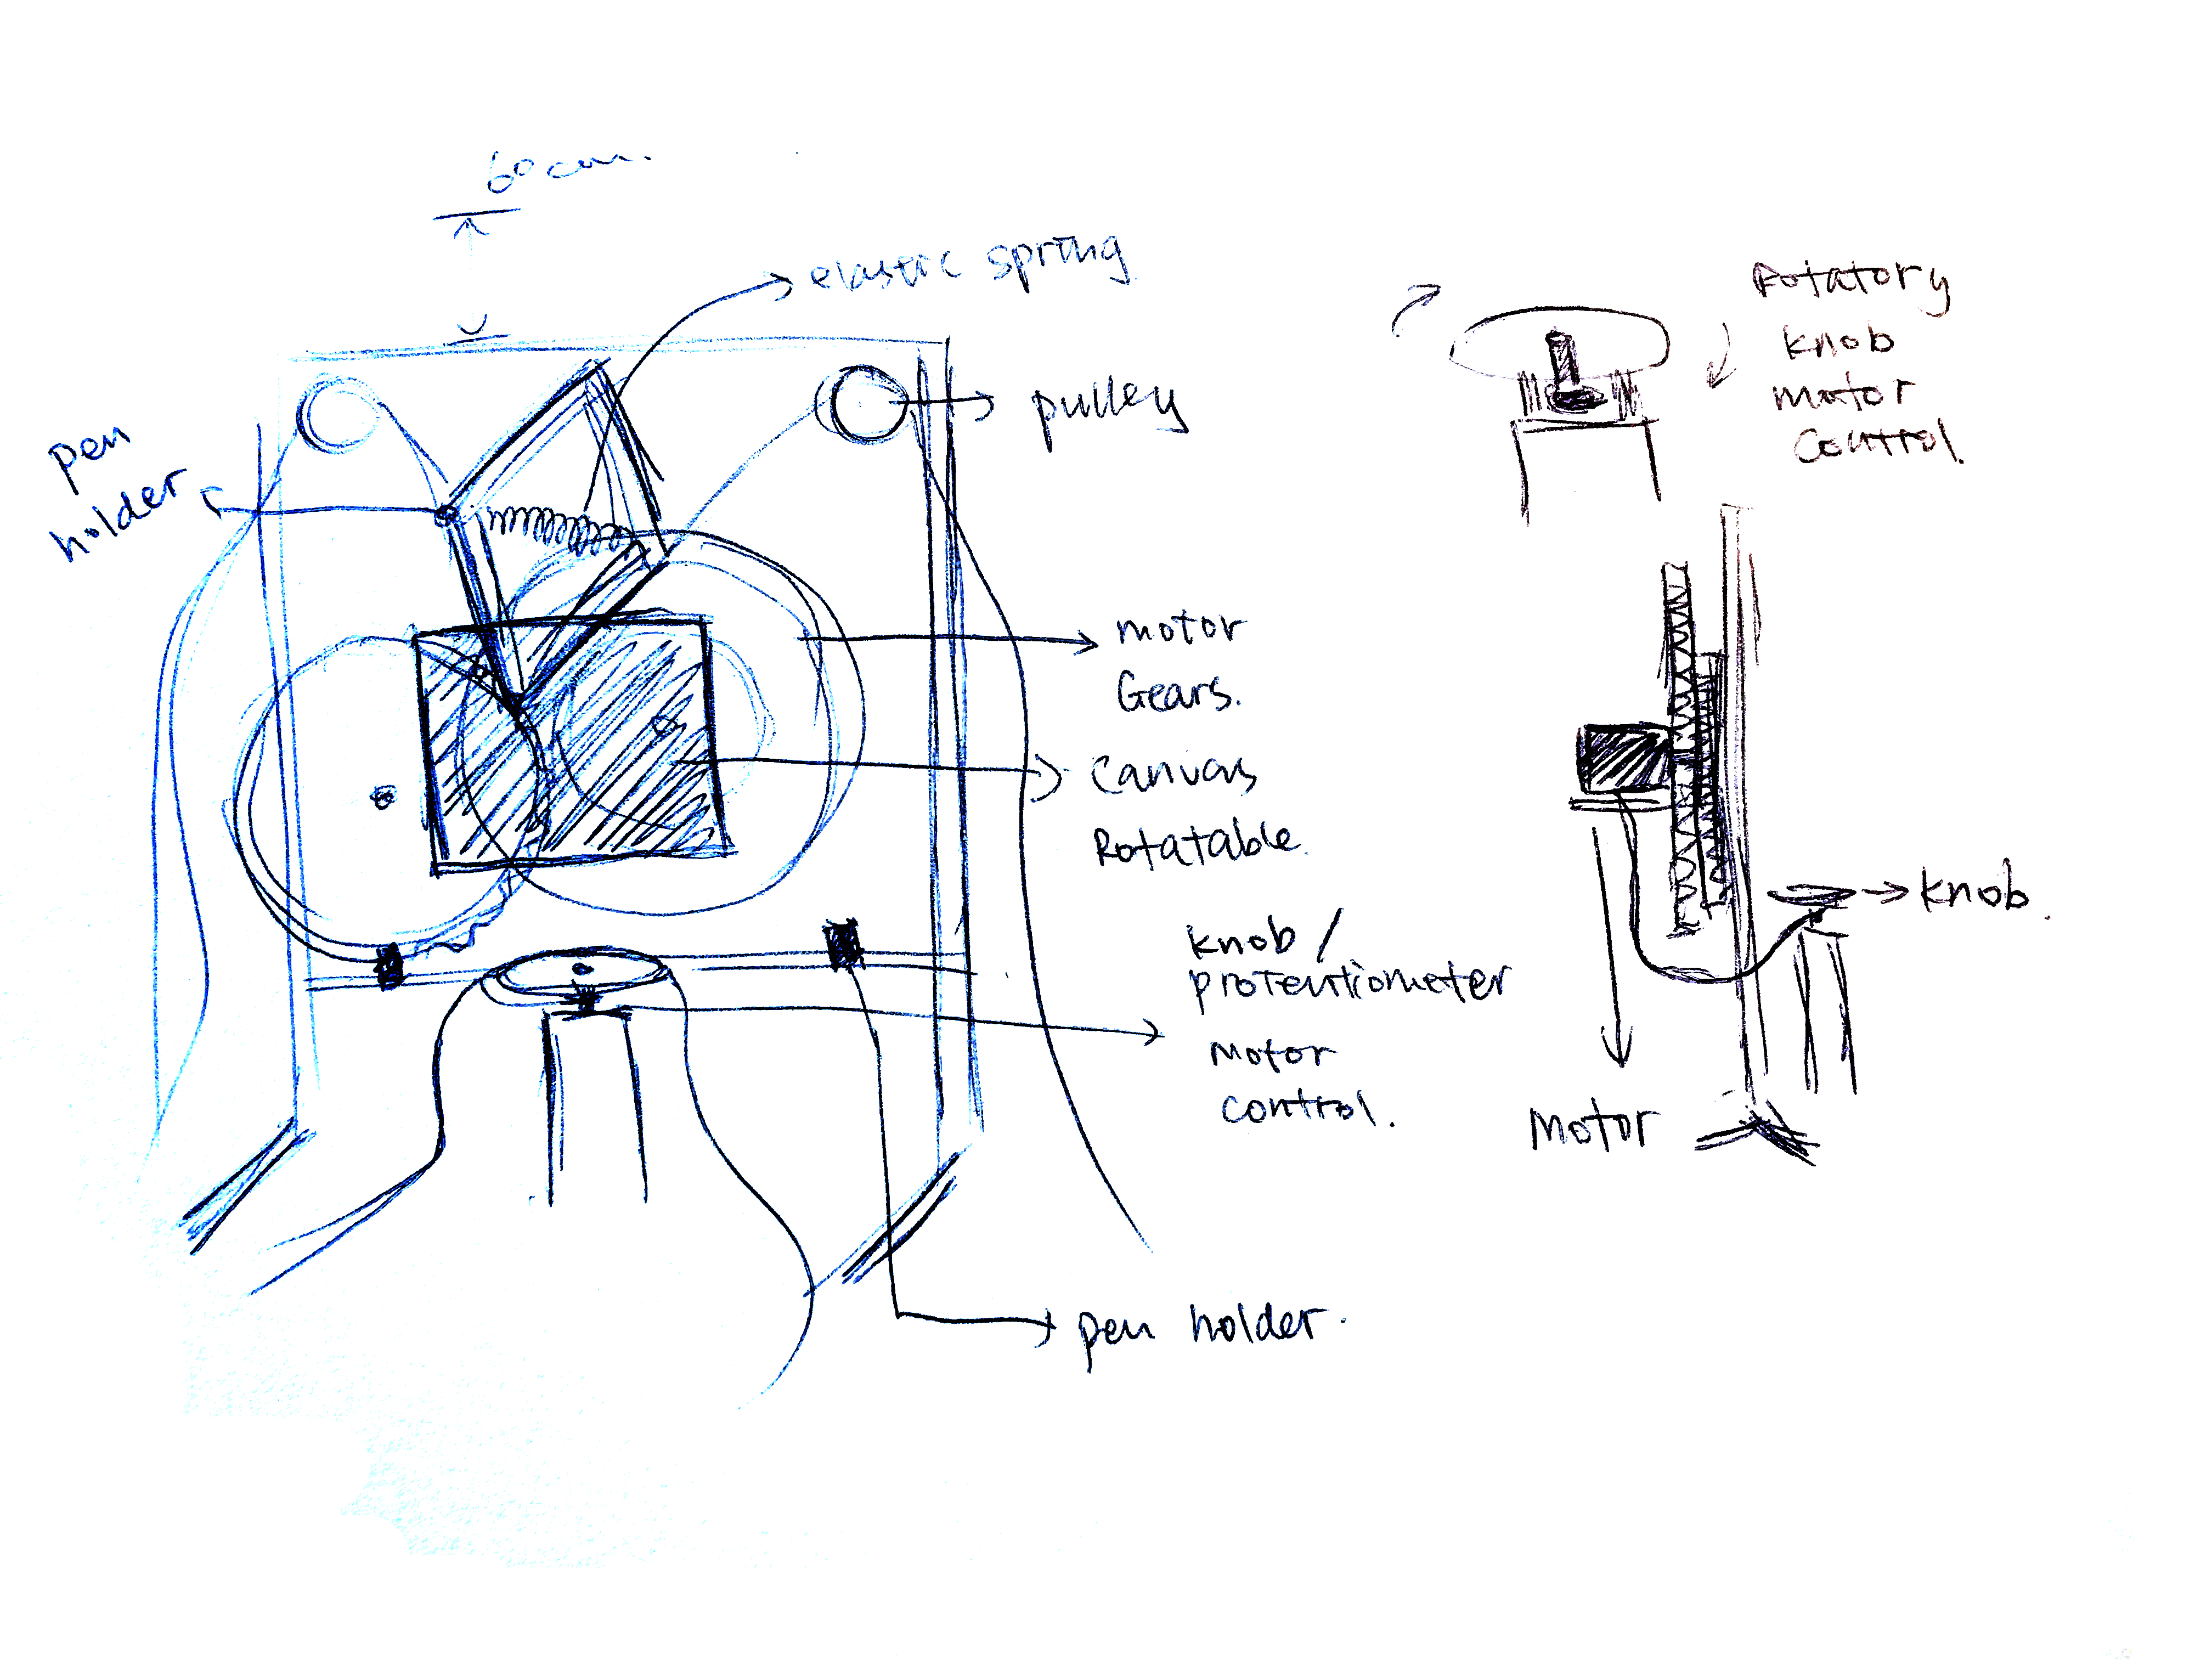 60 cm.
elastic spring
pulley
pen
holder
motor
Gears.
canvas
Rotatable.
knob /
protentiometer
motor
control.
pen holder.
Rotatory
knob
motor
control.
knob.
Motor